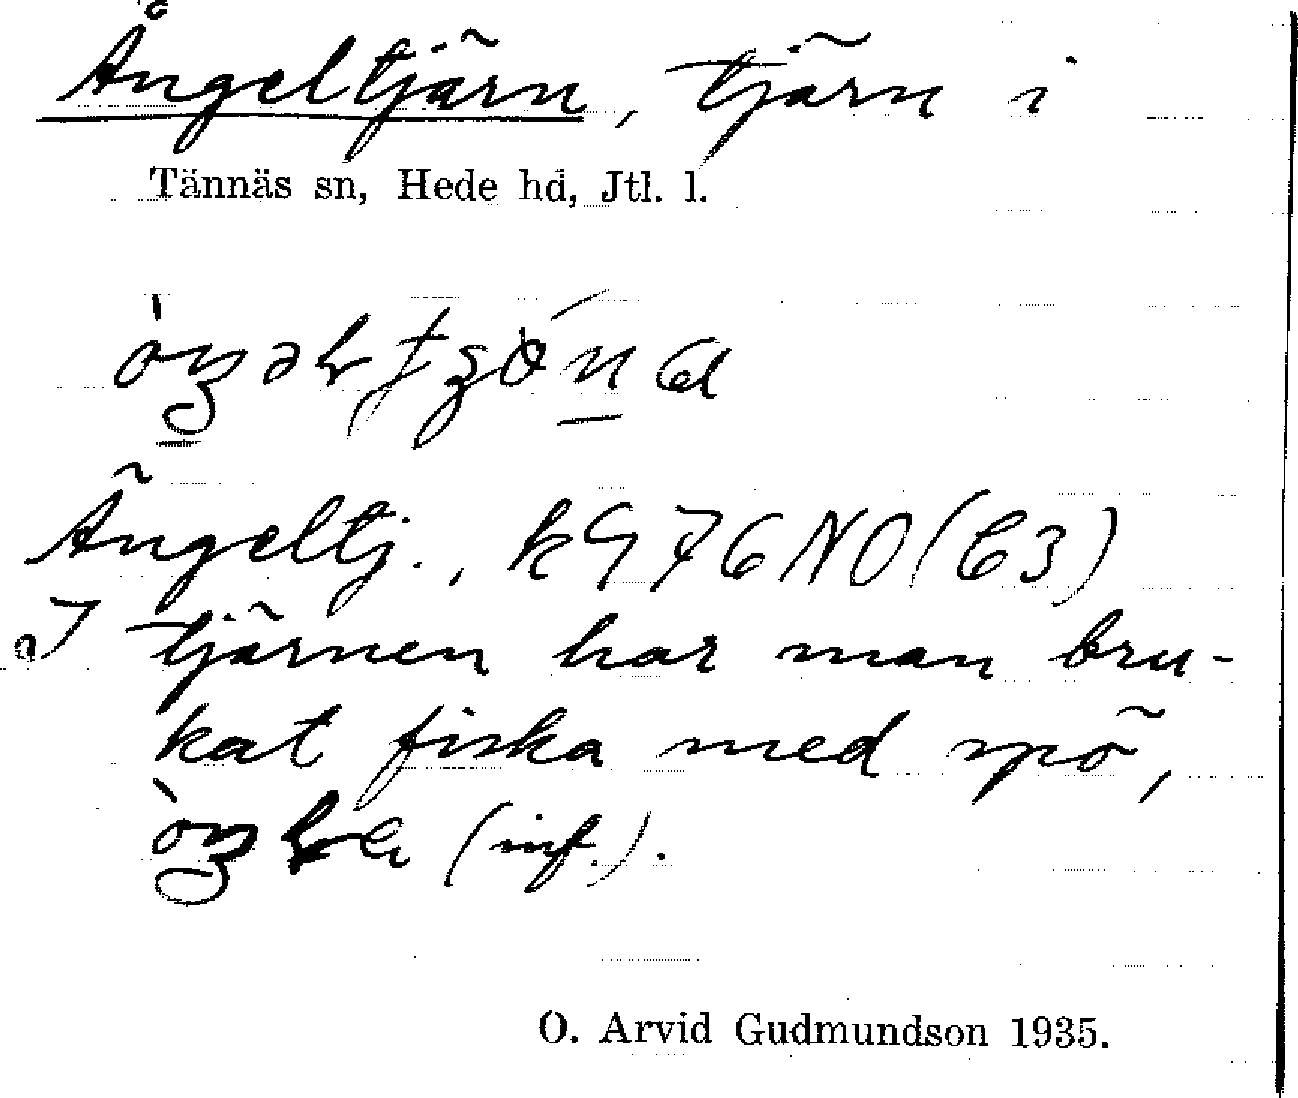 Ångeltjärn, tjärn i
Tännäs sn, Hede hd, Jtl. l.
Ängeltj., k G 76 NO (C3)
I tjärnen har man bru-
kat fiska med spö,
(inf.).
O. Arvid Gudmundson 1935.